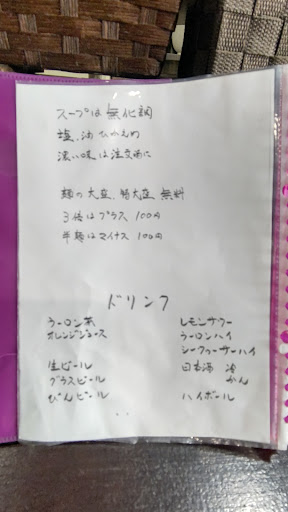 スープは無化調
塩、油ひかえめ
濃い味は注文時に
麺の大盛、特大盛 無料
3倍はプラス 100円
半麺はマイナス 100円
ドリンク
ウーロン茶
オレンジジュース
生ビール
グラスビール
びんビール
レモンサワー
ウーロンハイ
シークァーサーハイ
日本酒 冷
かん
ハイボール